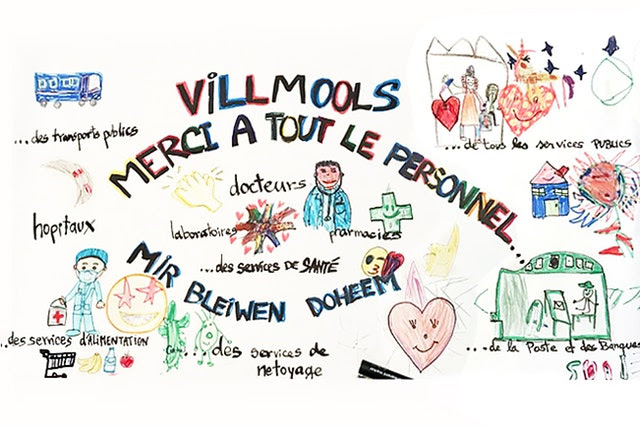 VILLMOOLS
MERCI A TOUT LE PERSONNEL...
...des transports publics
...de tous les services PUBLICS
hopitaux
docteurs
laboratoires
pharmacies
...des services DE SANTÉ
MIR BLEIWEN DOHEEM
...des services d'ALIMENTATION
...des services de
netoyage
...de la Poste et des Banques